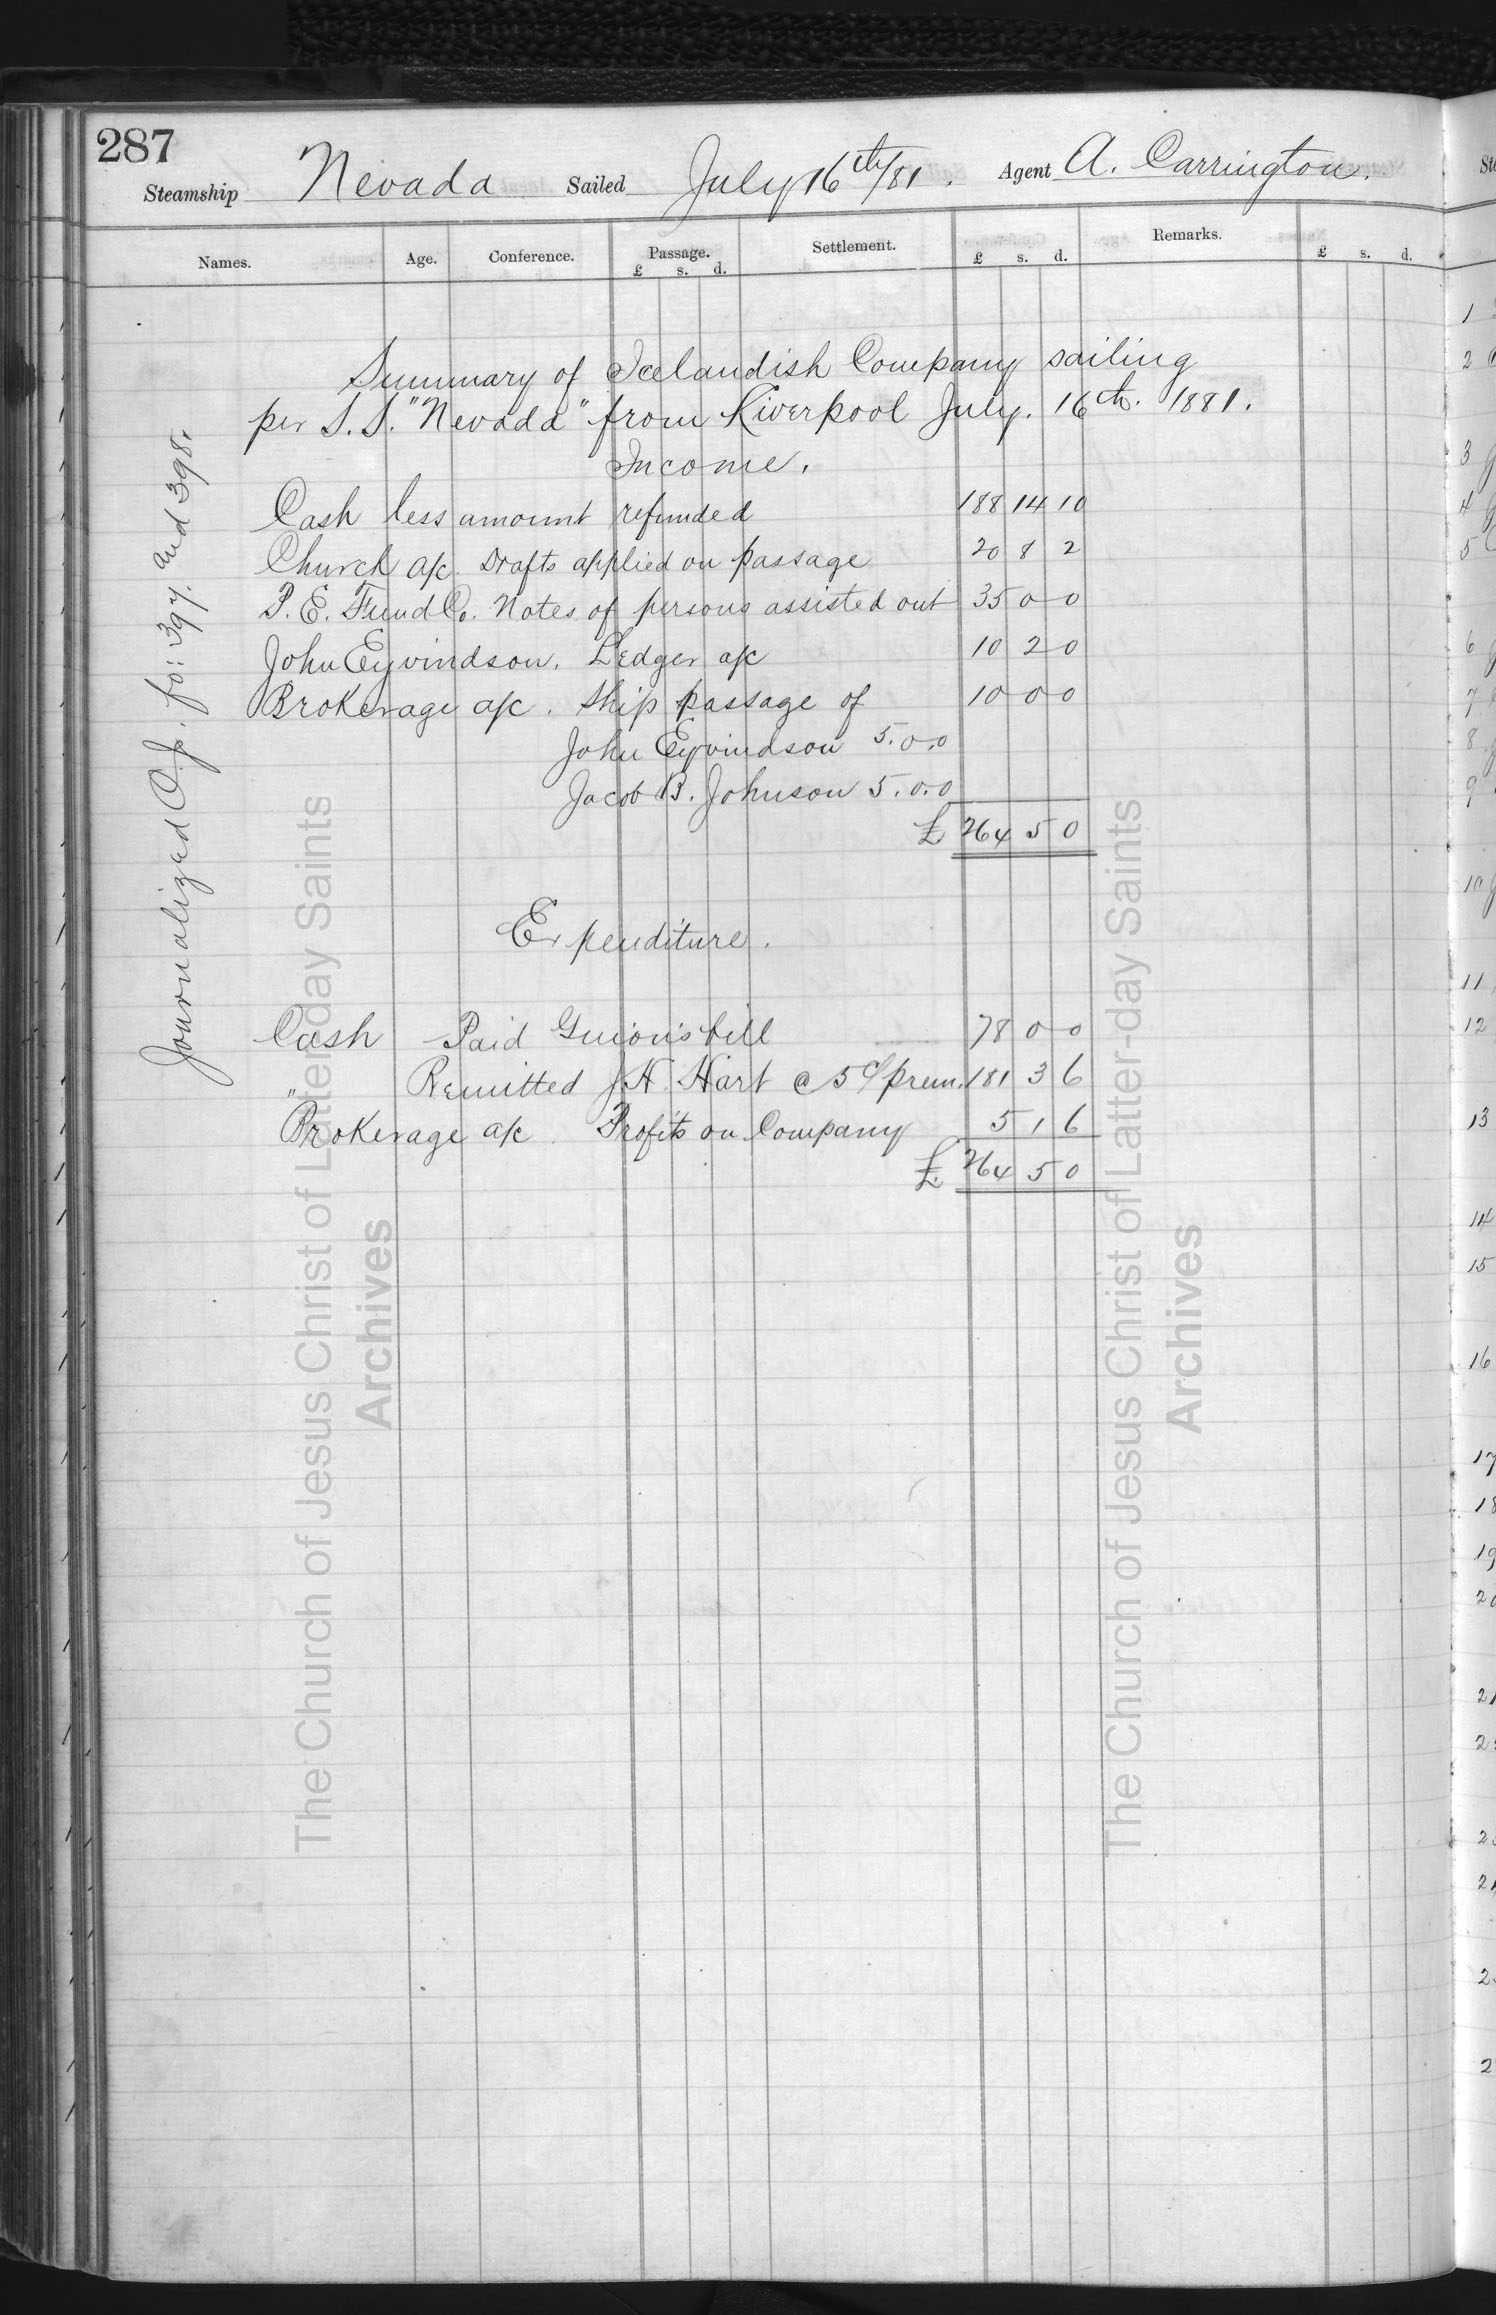 287
Steamship Nevada Sailed July 16th/81. Agent A. Carrington.
Names. Age. Conference. Passage. Settlement. Remarks.
£ s. d. £ s. d. £ s. d.
Summary of Icelandish Company sailing
per S.S. "Nevada" from Liverpool July. 16th. 1881.
Income.
Cash less amount refunded 188 14 10
Church a/c. Drafts applied on passage 20 8 2
P. E. Fund Co. Notes of persons assisted out 35 0 0
John Eyvindson. Ledger a/c 10 2 0
Brokerage a/c. Ship passage of 10 0 0
John Eyvindson 5.0.0
Jacob B. Johnson 5.0.0
£ 264 5 0
Expenditure.
Cash Paid Guion's bill 78 0 0
" Remitted J H. Hart @ 5 c/ prem. 181 3 6
Brokerage a/c. Profits on Company 5 1 6
£ 264 5 0
Journalized O. J. fo: 397. and 398.
The Church of Jesus Christ of Latter-day Saints
Archives
The Church of Jesus Christ of Latter-day Saints
Archives
1
2
3
4
5
6
7
8
9
10
11
12
13
14
15
16
17
18
19
20
21